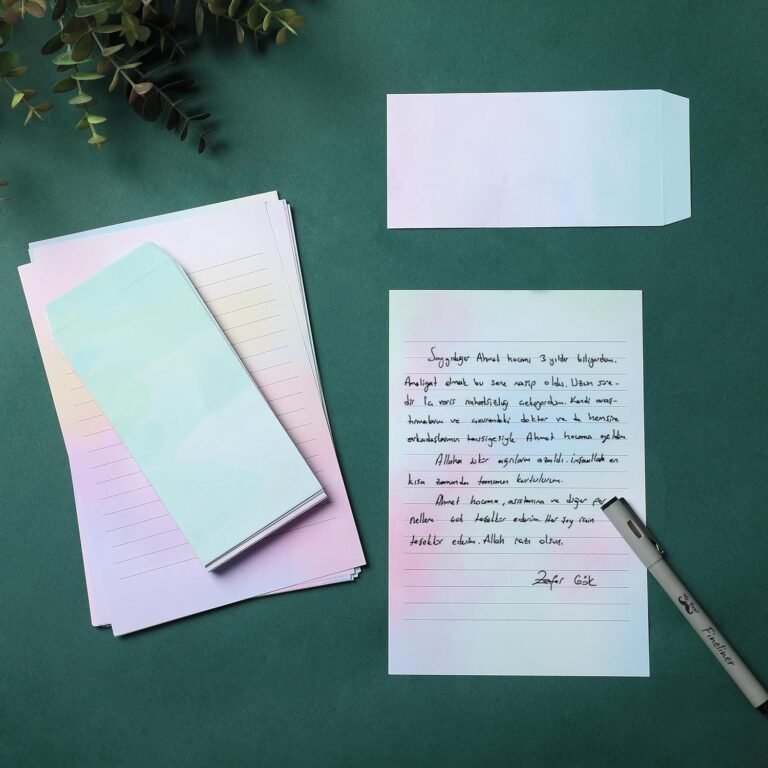 Saygıdeğer Ahmet hocamı 3 yıldır biliyordum.
Ameliyat olmak bu sene nasip oldu. Uzun süre-
dir İç varis rahatsızlığı çekiyordum. Kendi araş-
tırmalarım ve çevremdeki doktor ve de hemşire
arkadaşlarımın tavsiyesiyle Ahmet hocama geldim.
Allaha şükür ağrılarım azaldı. inşaallah en
kısa zamanda tamamen kurtulurum.
Ahmet hocama, asistanına ve diğer per
nellere çok teşekkür ederim. Her şey için
teşekkür ederim. Allah razı olsun.
Zafer Gök
Fineliner